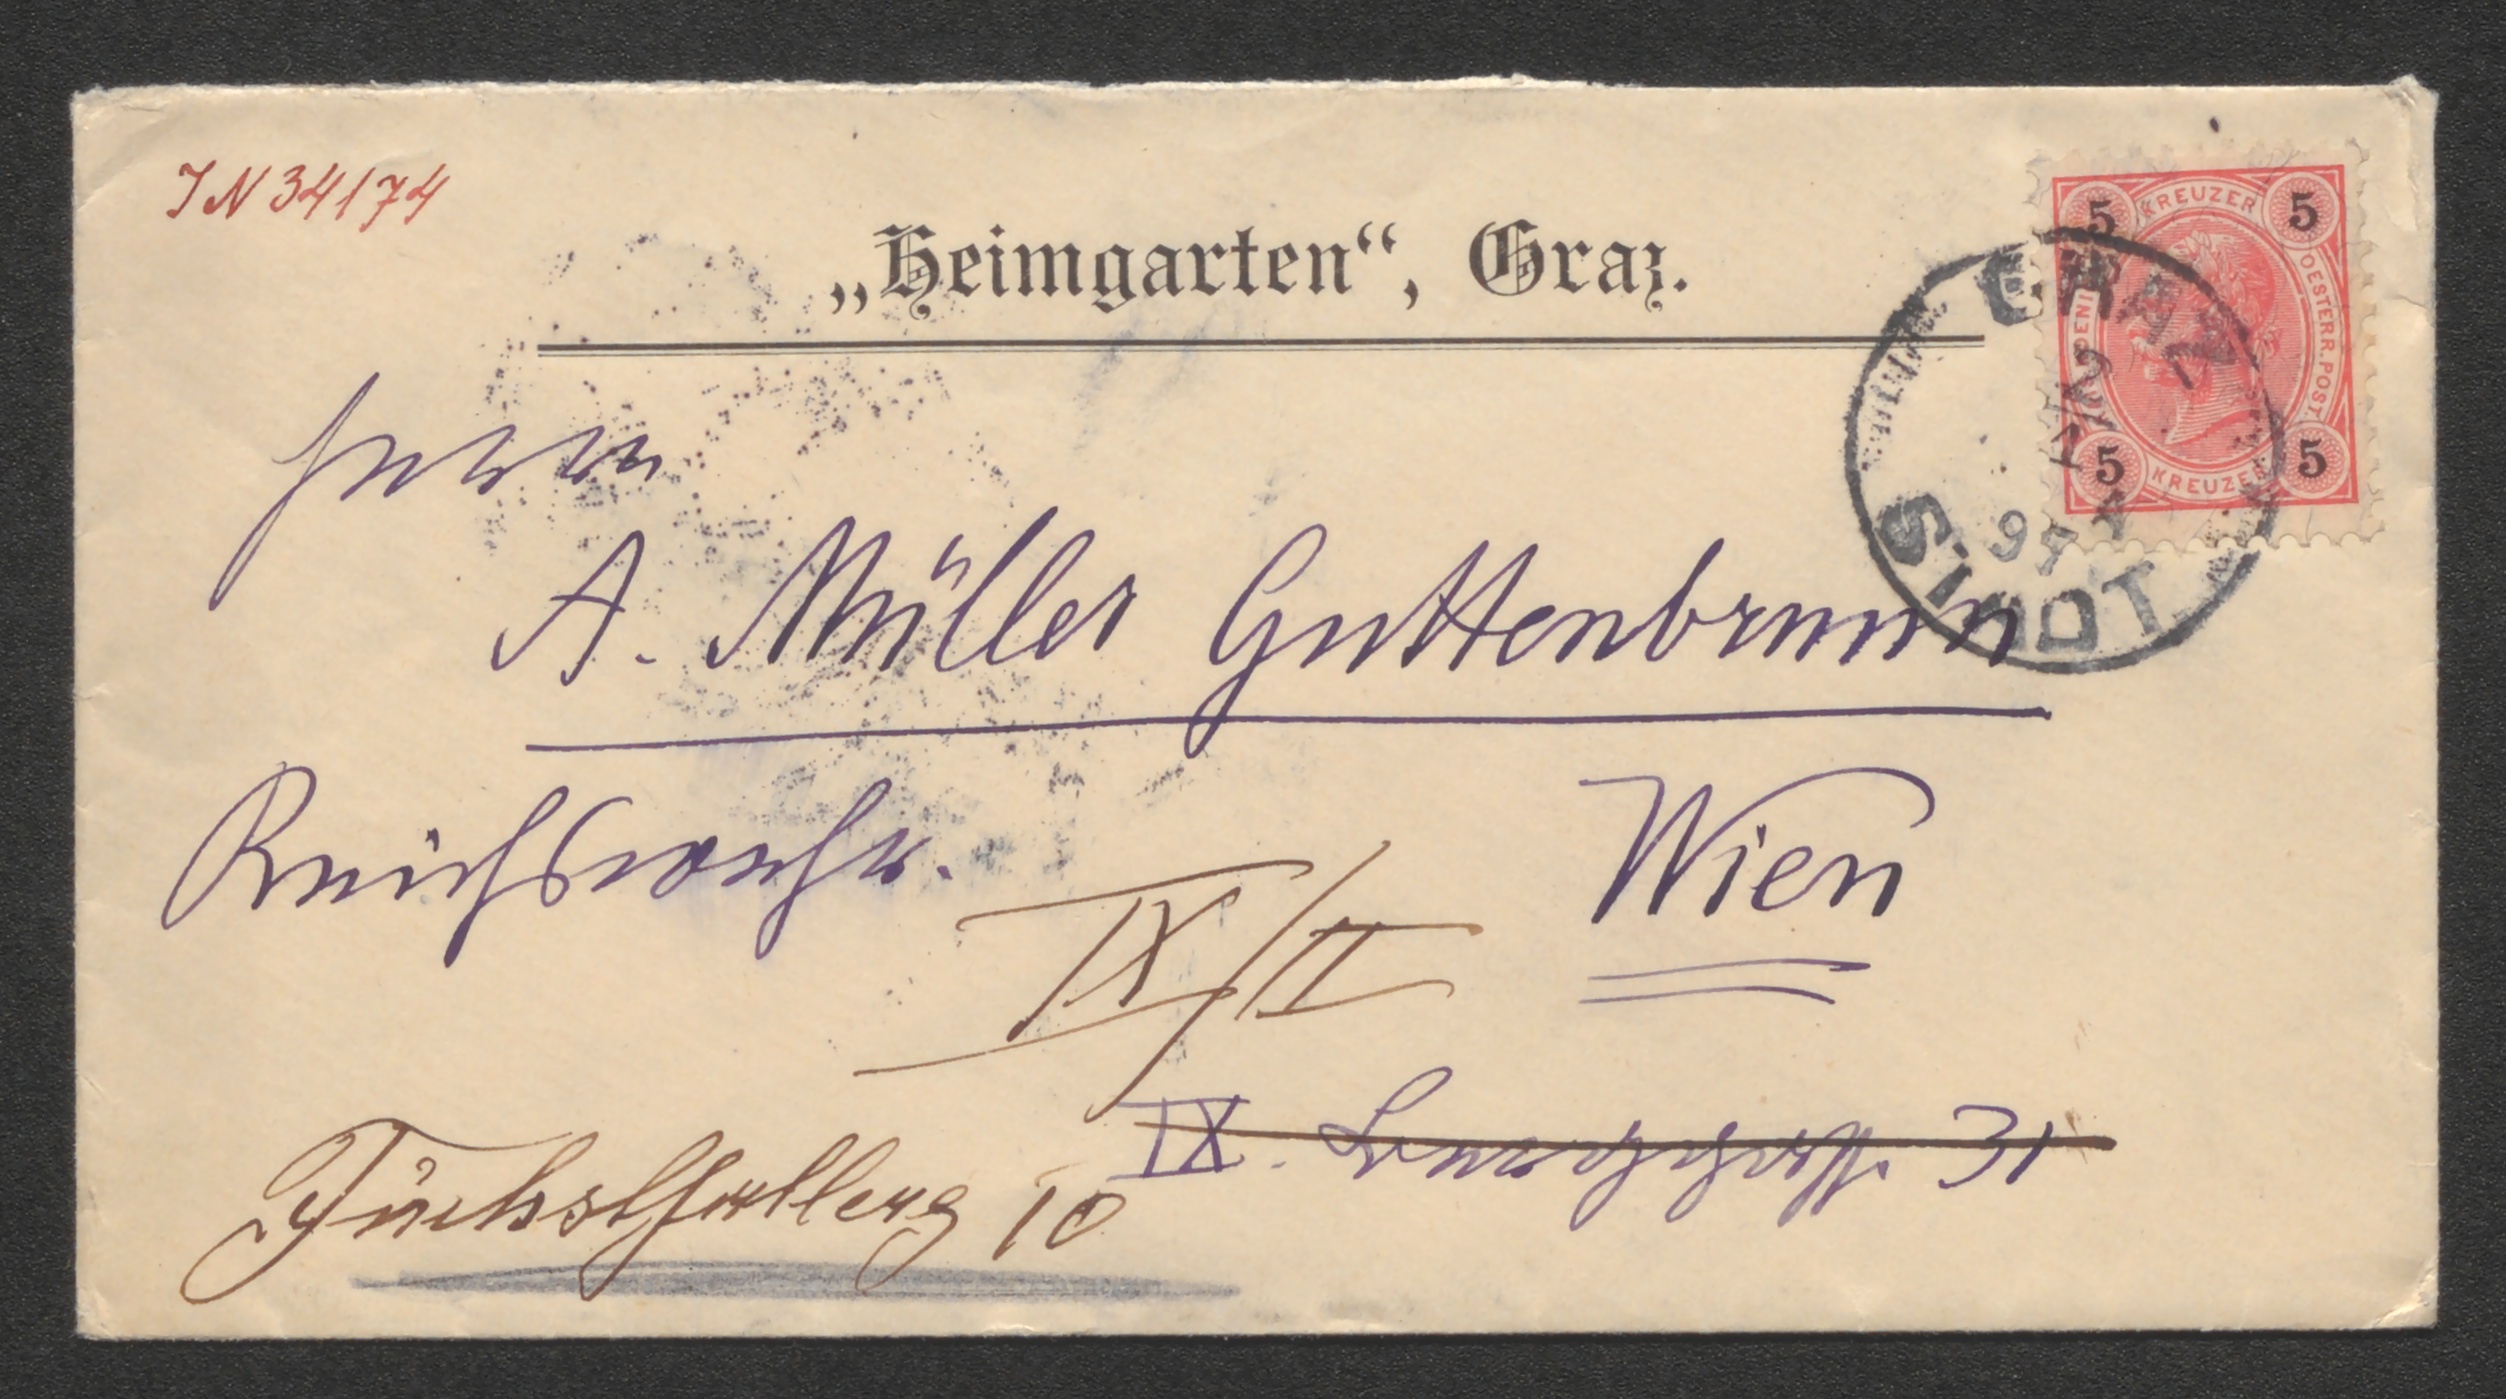 IN 34174
„Heimgarten“, Graz.
5 KREUZER 5
OESTERR. POST.
5 KREUZER 5
GRAZ
STADT
Herrn
A. Müller Guttenbrunn
Reichswehr.
Wien
IX/II
IX. 31
Fuchsthallerg 10